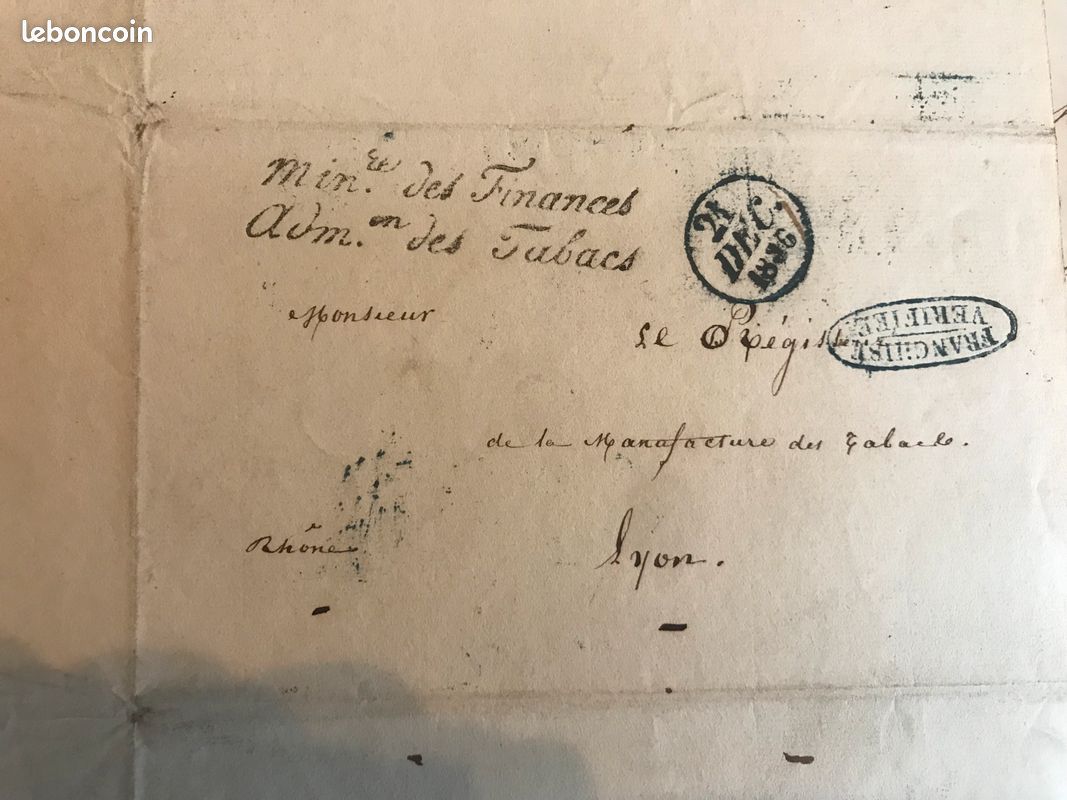 leboncoin
Min.te des Finances
Adm.on des Tabacs
21
DEC.
1826
Monsieur
Le Régisseur
FRANCHISE
VERIFIÉE
de la Manufacture des Tabacs.
Rhône
Lyon.